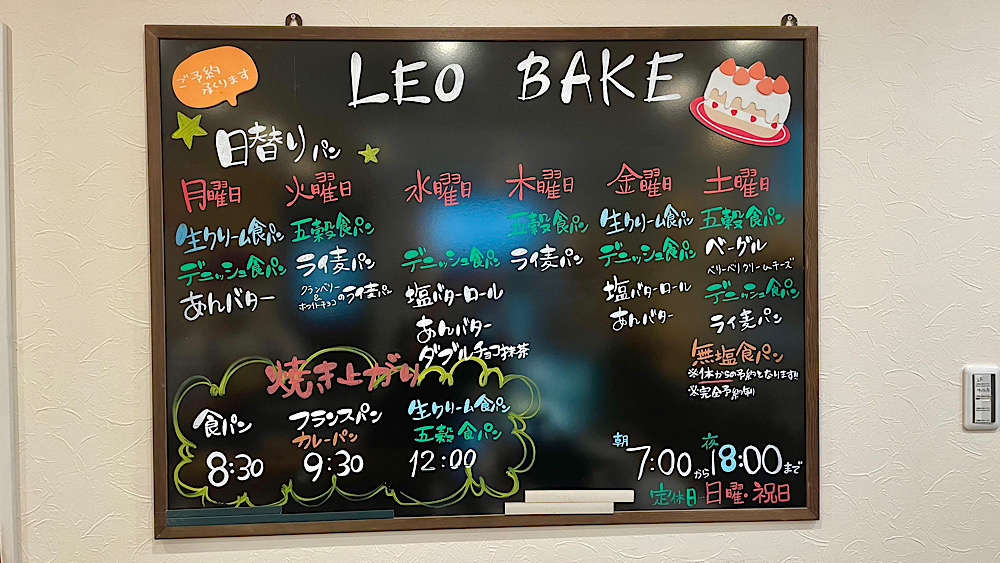 ご予約
承ります
LEO BAKE
日替りパン
月曜日
生クリーム食パン
デニッシュ食パン
あんバター
火曜日
五穀食パン
ライ麦パン
クランベリー
&
ホワイトチョコ
のライ麦パン
水曜日
デニッシュ食パン
塩バターロール
あんバター
ダブルチョコ抹茶
木曜日
五穀食パン
ライ麦パン
金曜日
生クリーム食パン
デニッシュ食パン
塩バターロール
あんバター
土曜日
五穀食パン
ベーグル
ベリーベリークリームチーズ
デニッシュ食パン
ライ麦パン
無塩食パン
※1本からの予約となります!!
※完全予約制
焼き上がり
食パン
8:30
フランスパン
カレーパン
9:30
生クリーム食パン
五穀食パン
12:00
朝7:00から夜18:00まで
定休日…日曜・祝日